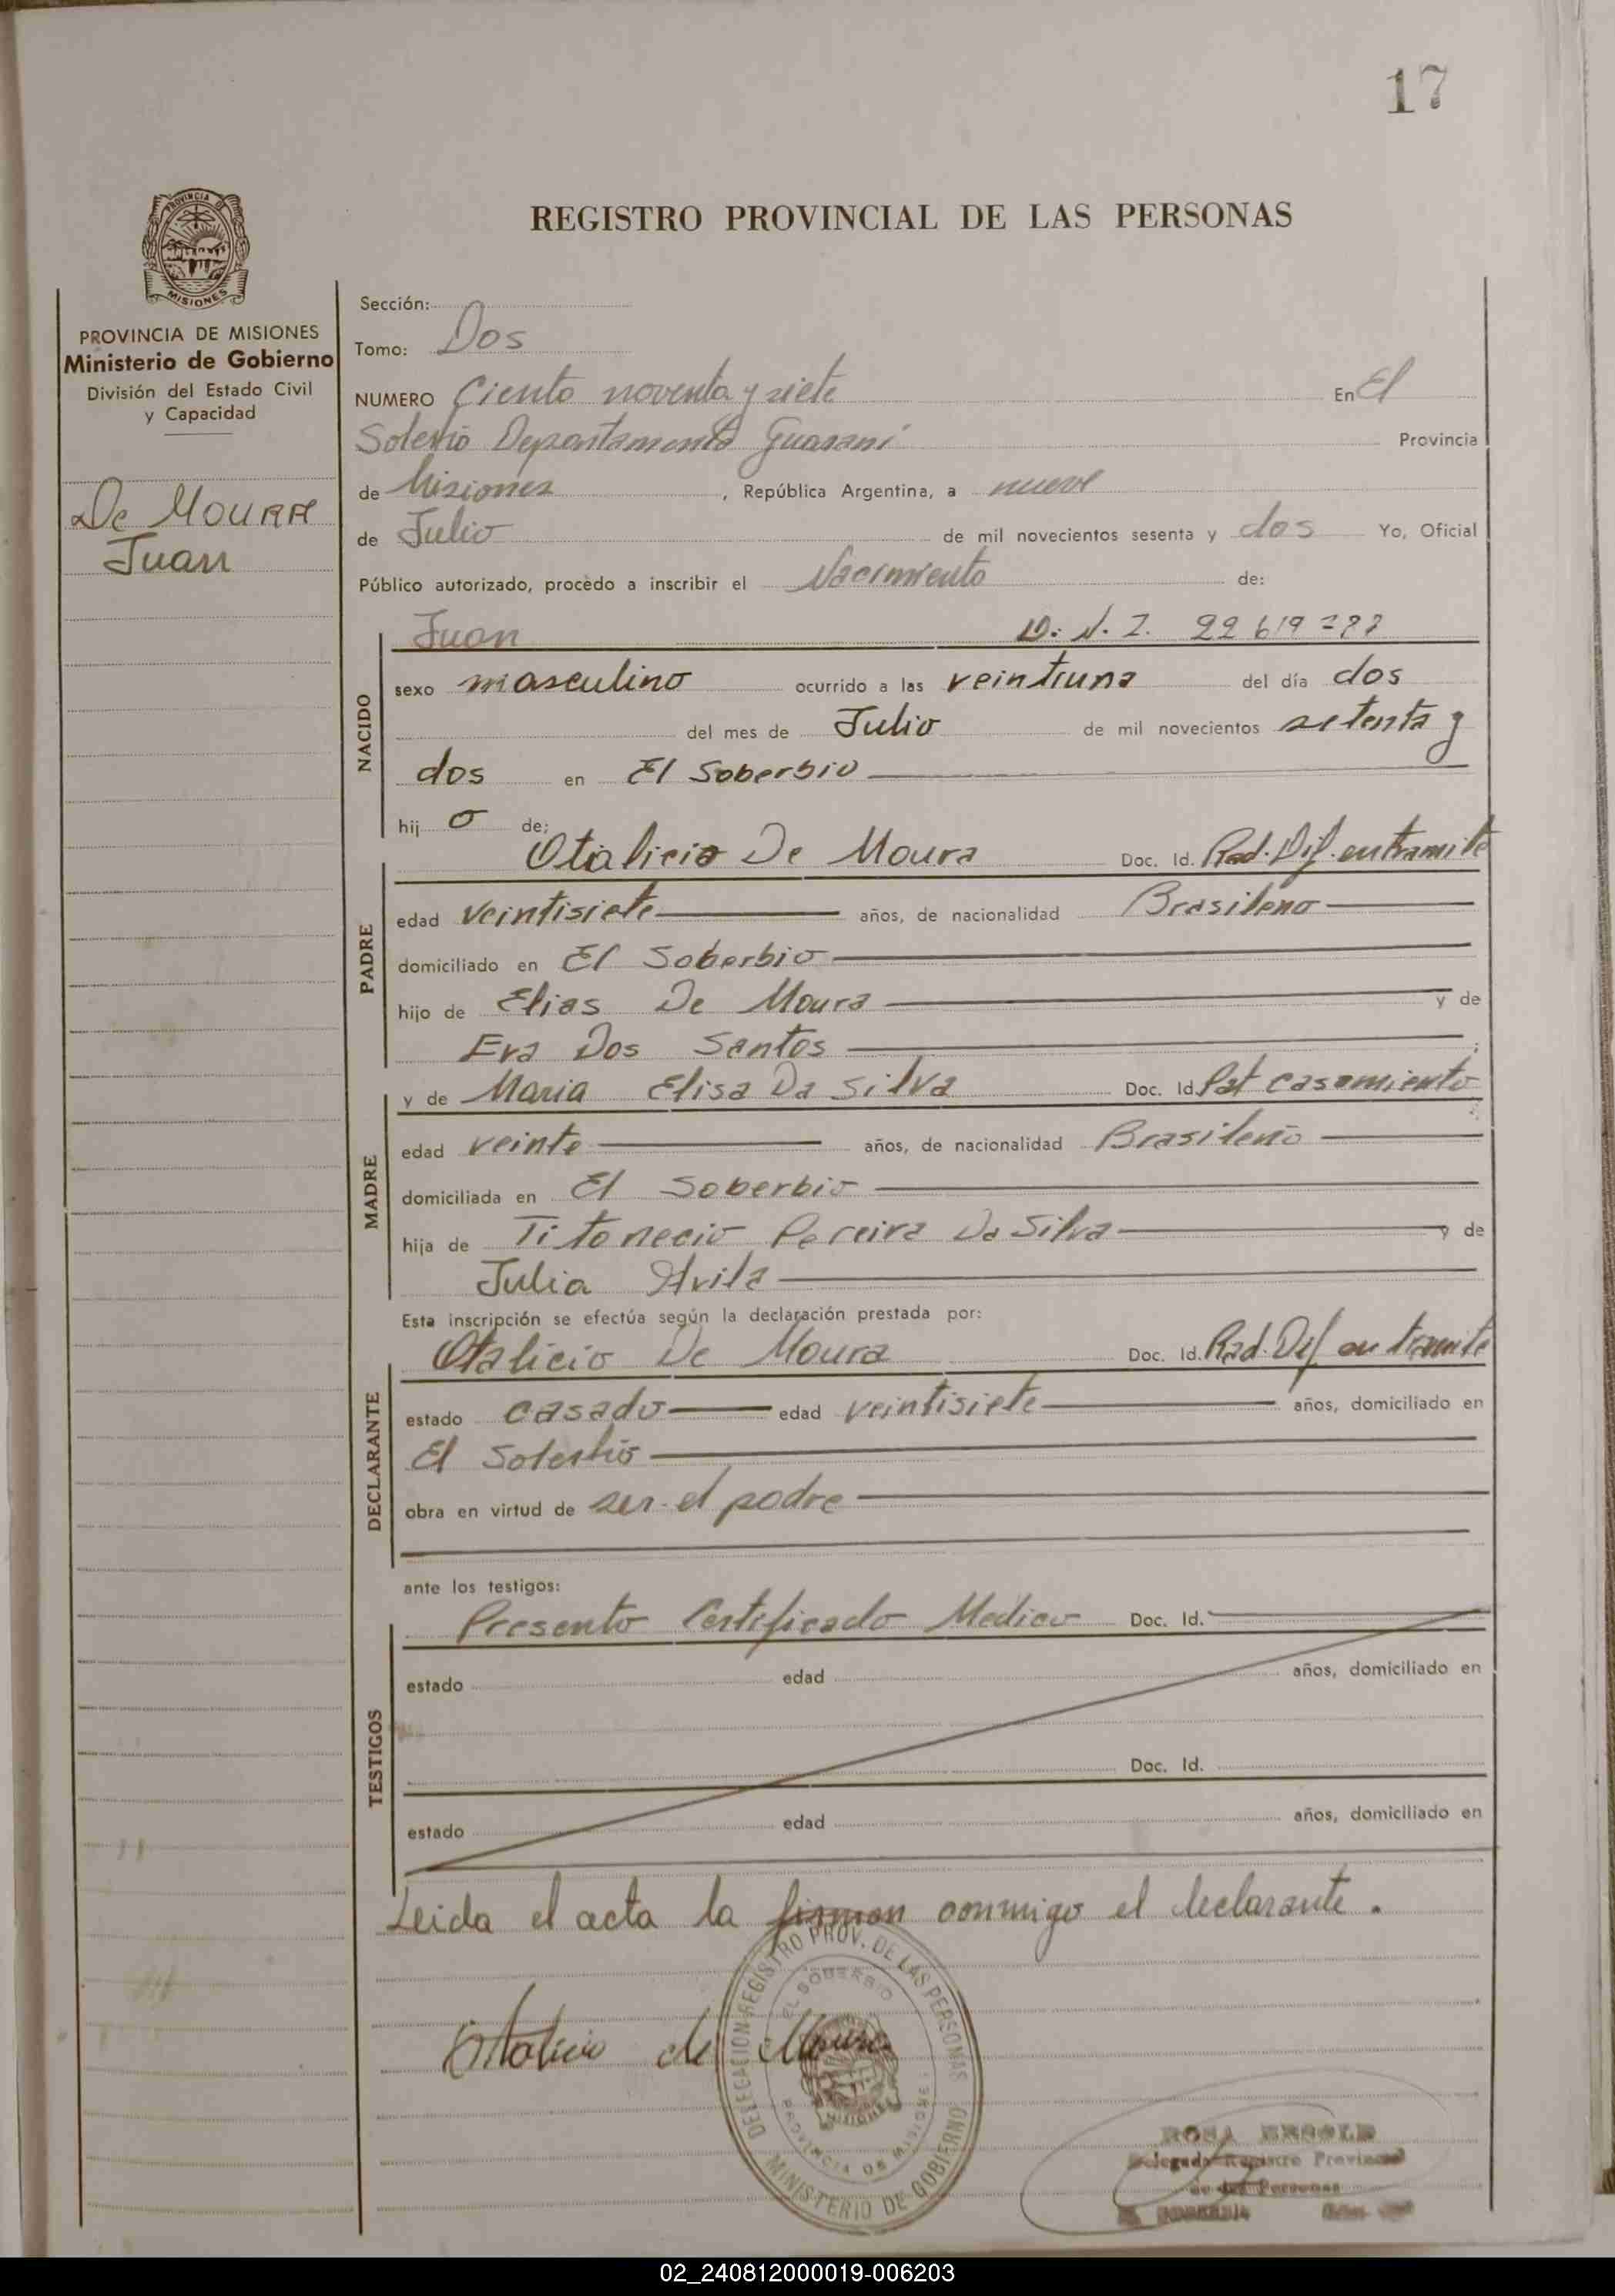 17
PROVINCIA DE
MISIONES
PROVINCIA DE MISIONES
Ministerio de Gobierno
División del Estado Civil
y Capacidad
De MOURA
Juan
REGISTRO PROVINCIAL DE LAS PERSONAS
Sección:
Tomo: Dos
NUMERO Ciento noventa y siete En El
Soberbio Departamento Guaraní Provincia
de Misiones, República Argentina, a nueve
de Julio de mil novecientos sesenta y dos Yo, Oficial
Público autorizado, procedo a inscribir el Nacimiento de:
NACIDO
Juan D. N. I. 22 619
sexo masculino ocurrido a las veintiuna del día dos
del mes de Julio de mil novecientos setenta y
dos en El Soberbio
hij o de:
PADRE
Otalicio De Moura Doc. Id. Rad. Dif. en tramite
edad veintisiete años, de nacionalidad Brasileno
domiciliado en El Soberbio
hijo de Elias De Moura y de
Eva Dos Santos ;
MADRE
y de Maria Elisa Da Silva Doc. Id. Pat casamiento
edad veinte años, de nacionalidad Brasileño
domiciliada en El Soberbio
hija de Titonecio Pereira Da Silva y de
Julia Avila
Esta inscripción se efectúa según la declaración prestada por:
DECLARANTE
Otalicio De Moura Doc. Id. Rad. Dif en tramite
estado casado edad veintisiete años, domiciliado en
El Soberbio
obra en virtud de ser el padre
ante los testigos:
TESTIGOS
Presento Certificado Medico Doc. Id.
estado edad años, domiciliado en
Doc. Id.
estado edad años, domiciliado en
Leida el acta la firman conmigo el declarante.
Otalicio de Moura
DELEGACION REGISTRO PROV. DE LAS PERSONAS
EL SOBERBIO
PROVINCIA DE MISIONES
MISIONES
MINISTERIO DE GOBIERNO
ROSA
Delegada Registro Provincial
de las Personas
EL SOBERBIO
02_240812000019-006203